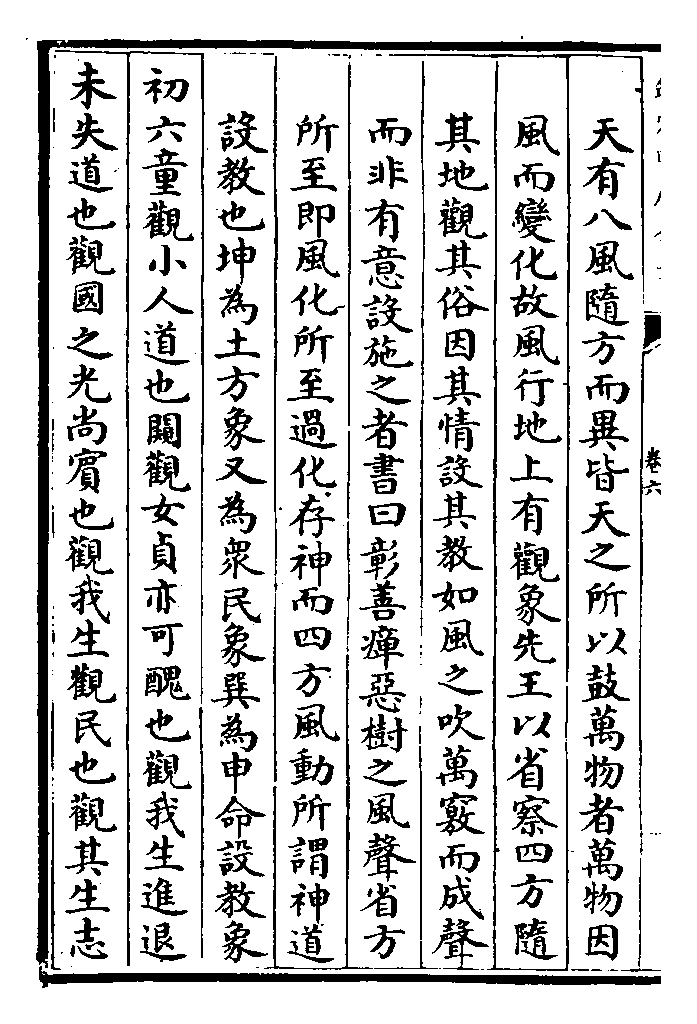 卷六
天有八風隨方而異皆天之所以鼓萬物者萬物因
風而變化故風行地上有觀象先王以省察四方隨
其地觀其俗因其情設其教如風之吹萬竅而成聲
而非有意設施之者書曰彰善癉惡樹之風聲省方
所至即風化所至過化存神而四方風動所謂神道
設教也坤為土方象又為衆民象巽為申命設教象
初六童觀小人道也闚觀女貞亦可醜也觀我生進退
未失道也觀國之光尚賔也觀我生觀民也觀其生志